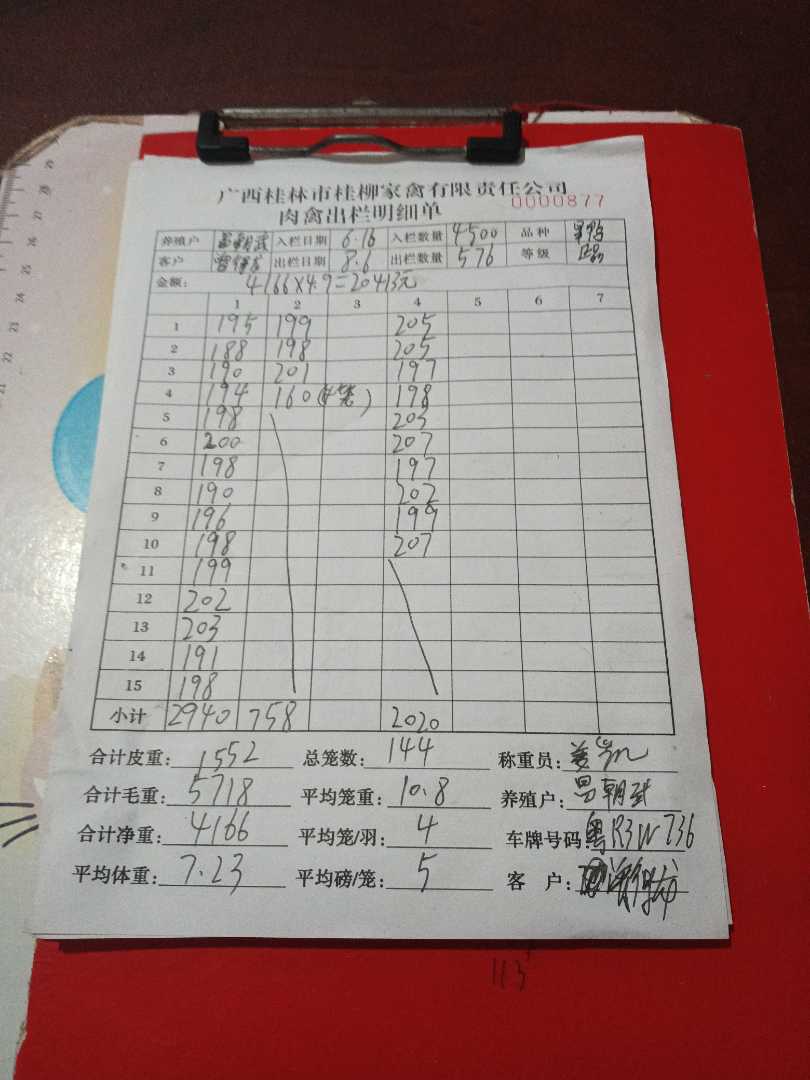 广西桂林市桂柳家禽有限责任公司
肉禽出栏明细单 0000877
养殖户 朝武 入栏日期 6.16 入栏数量 4500 品种
客户 出栏日期 8.6 出栏数量 576 等级
金额: 4166×4.9=20413元
1 2 3 4 5 6 7
1 195 199 205
2 188 198 205
3 190 201 197
4 194 160(4笼) 198
5 198 203
6 200 207
7 198 197
8 190 202
9 196 199
10 198 207
11 199
12 202
13 203
14 191
15 198
小计 2940 758 2020
合计皮重: 1552 总笼数: 144 称重员: 姜
合计毛重: 5718 平均笼重: 10.8 养殖户: 朝武
合计净重: 4166 平均笼/羽: 4 车牌号码: 粤R3W736
平均体重: 7.23 平均磅/笼: 5 客 户:
113
29
28
27
26
25
24
23
22
21